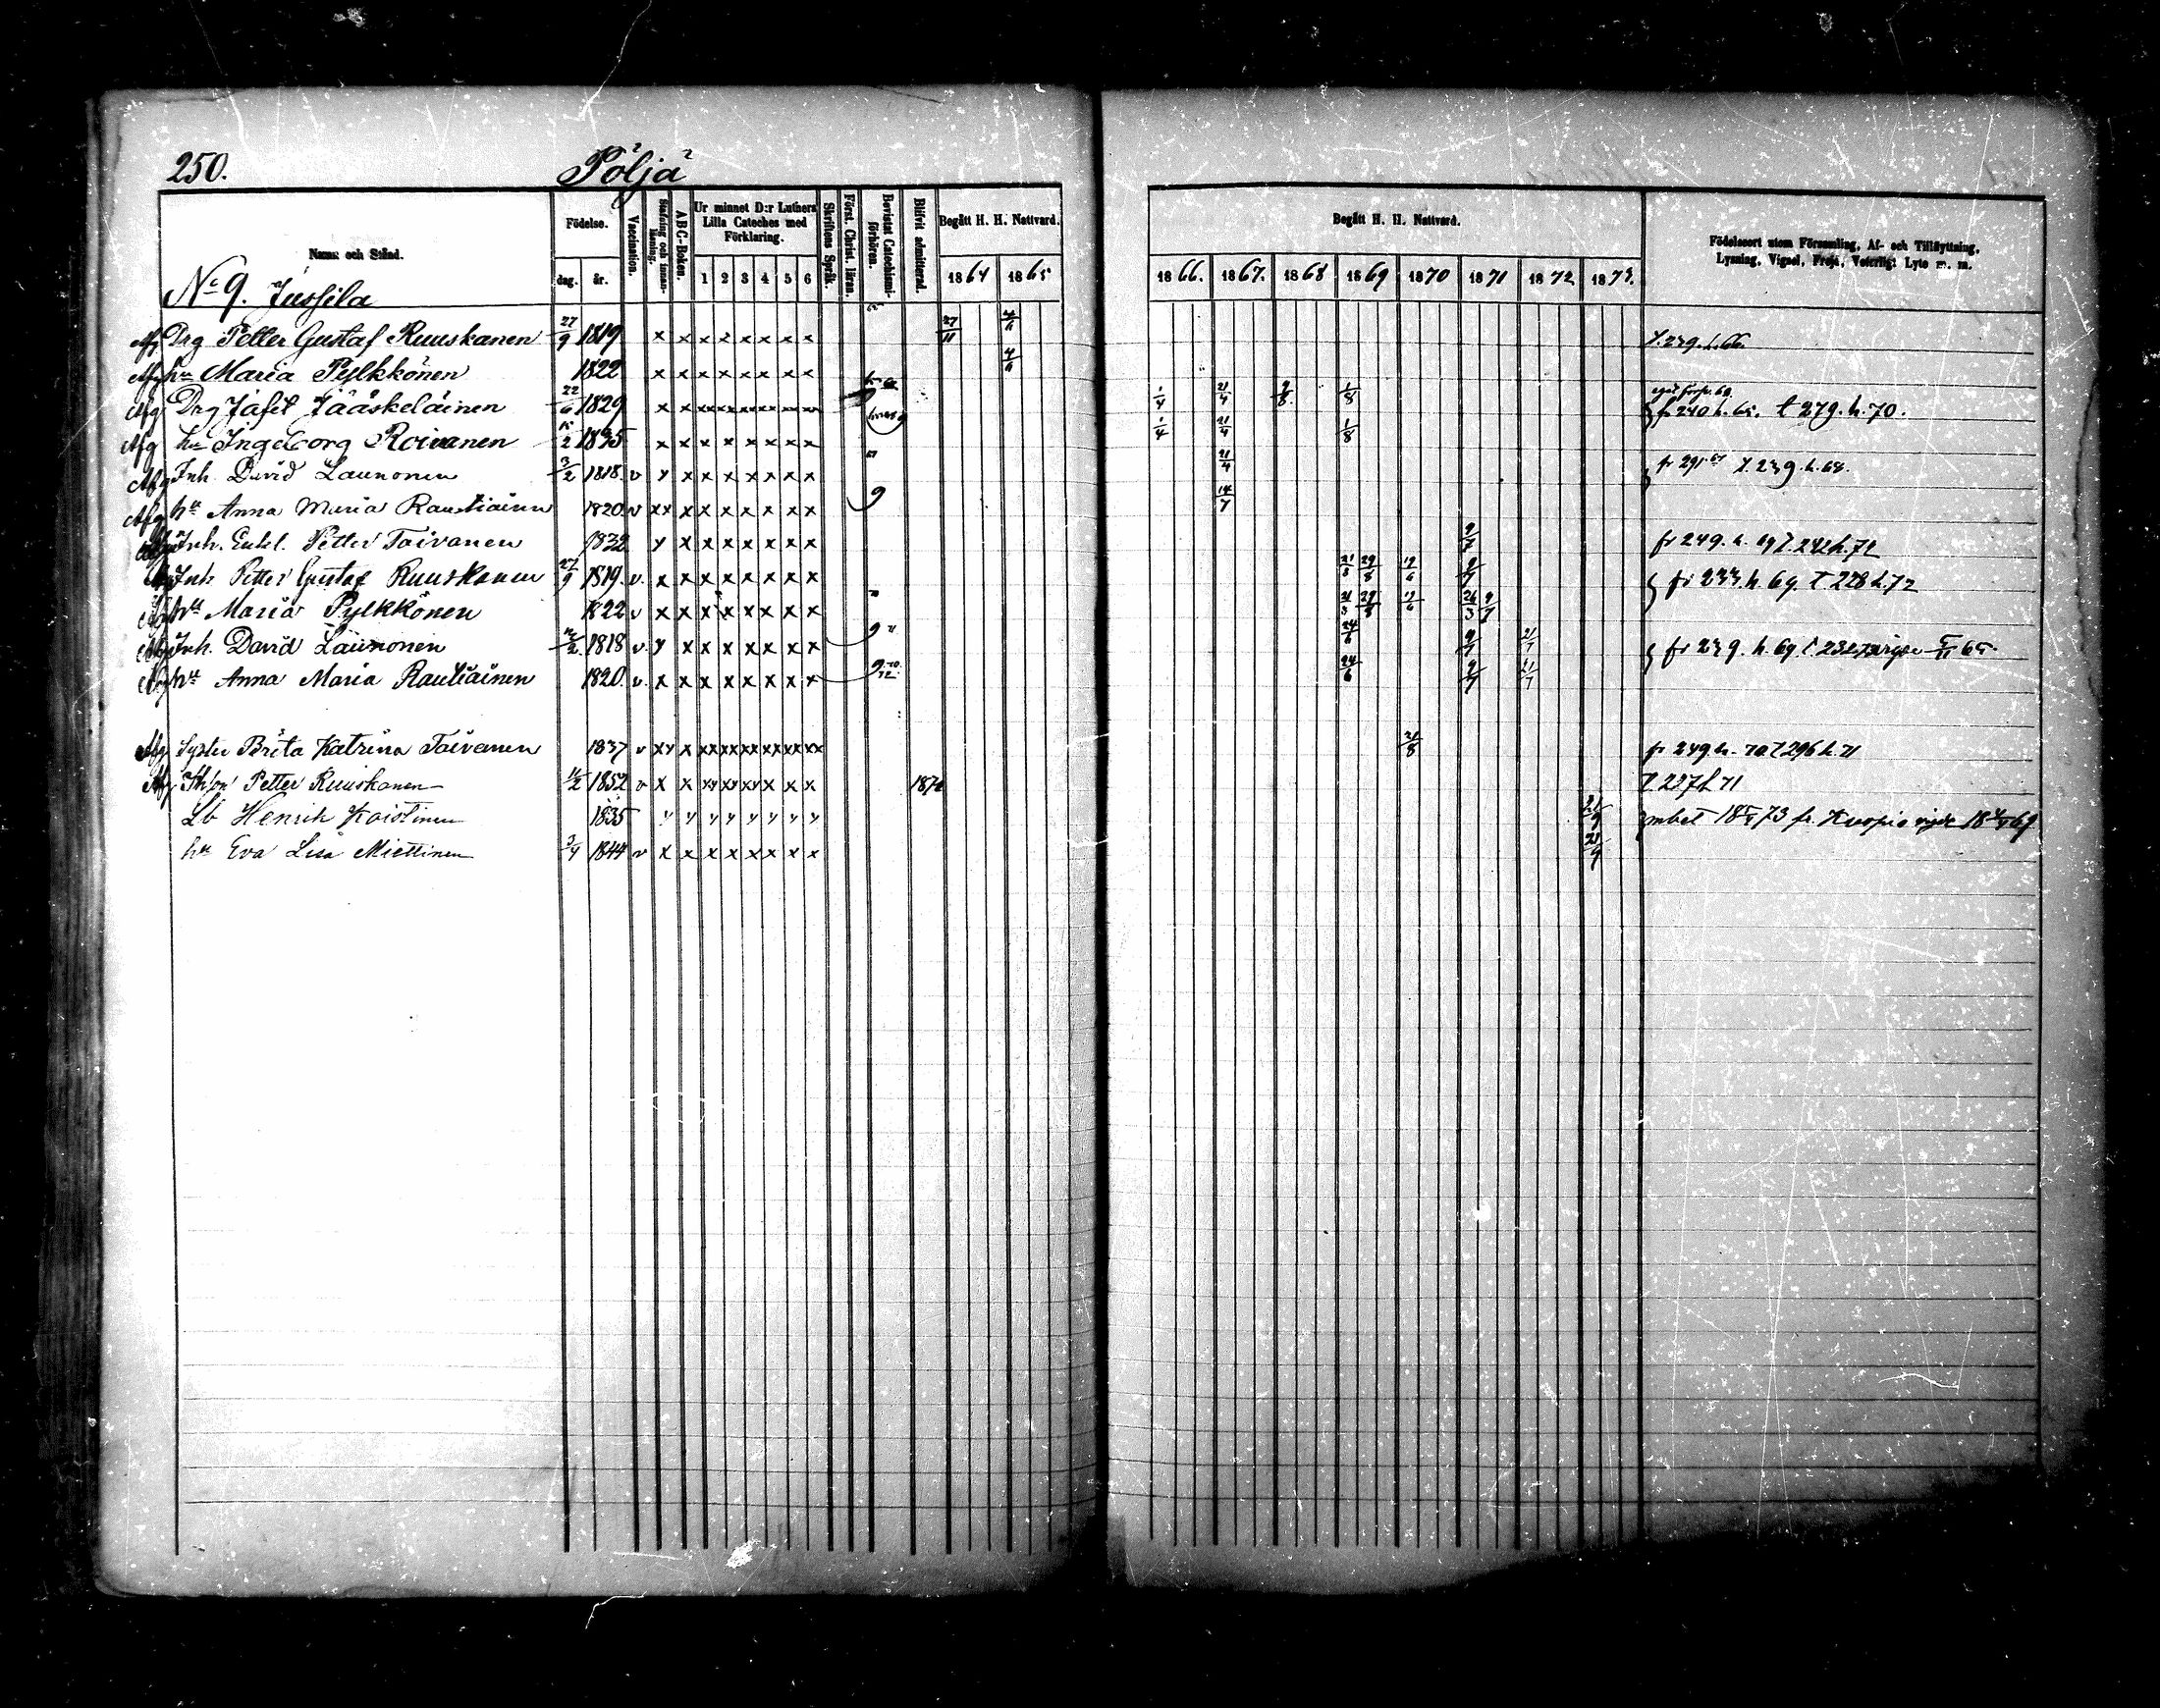 250. Pöljä
Namn och Stånd.
Födelse.
dag. år.
Vaccination.
Stafning och innanläsning.
ABC-Boken.
Ur minnet D:r Luthers Lilla Cateches med Förklaring.
1 2 3 4 5 6
Skriftens Språk.
Först. Christ. läran.
Bevistat Catechismiförhören.
Blifvit admitterad.
Begått H. H. Nattvard.
1864 1865
Begått H. H. Nattvard.
1866. 1867. 1868 1869 1870 1871 1872 1873.
Födelseort utom Församling, Af- och Tillflyttning,
Lysning, Vigsel, Frejd, Veterligt Lyte m. m.
No 9. Jussila
Afg Drg Petter Gustaf Ruuskanen 27/9 1819 x x x x x x x x 27/11 4/6 t. 239. h. 66.
Afg hu Maria Pylkkönen 1822 x x x x x x x x 4/6
Afg Drg Jafet Jääskeläinen 22/6 1829 1/4 21/4 1/8 fr 240 h. 65. t 279. h. 70.
Afg hu Ingeborg Roivanen 15/2 1835 x x x x x x x x 1/4 21/4 1/8
Afg Inh. David Launonen 3/2 1818. v y x x x x x x x 21/4 fr 291 67 t. 239. h. 68.
Afg hu Anna Maria Rautiainen 1820 v xx x x x x x x x 9 14/7
Inh. Enkl. Petter Toivanen 1832 y x x x x x x x 9/7 fr 249. h. 69 t. 242 h. 72
Inh Petter Gustaf Ruuskanen 27/9 1819. v. x x x x x x x x 21/3 29/8 12/6 9/7 fr 233 h. 69. t 228 h. 72
hu Maria Pylkkönen 1822 v x x x x x x x x 21/3 29/8 12/6 26/3 9/7
Inh. David Launonen 1818 v. y x x x x x x x 24/6 9/7 21/7 fr 239. h. 69 t 232
hu Anna Maria Rautiainen 1820. v. x x x x x x x x 24/6 9/7 21/7
Afg Syster Brita Katrina Toivanen 1837 v 21/8 fr 249 h. 70 t 296 h. 71
Afg Petter Ruuskanen 11/2 1852 v x x t. 237 h 71
Lb Henrik Koistinen 1835 y y y y y y y y 21/9 73 fr. Kuopio 69
hu Eva Lisa Miettinen 3/4 1844 v x x x x x x x x 21/9